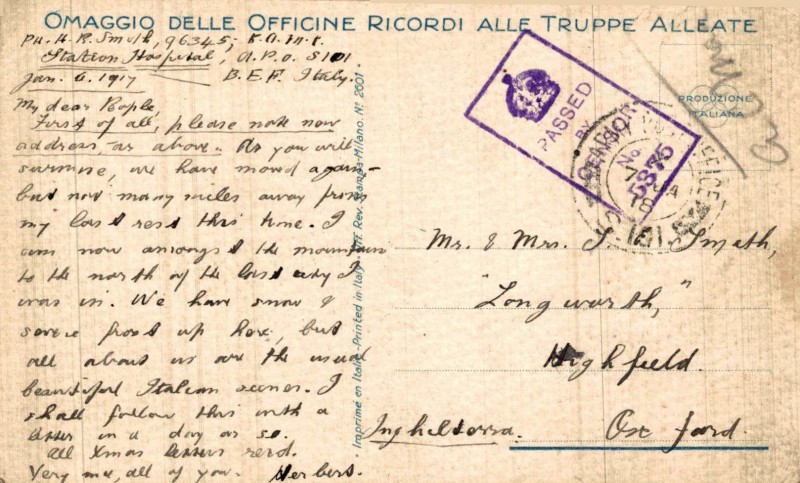 OMAGGIO DELLE OFFICINE RICORDI ALLE TRUPPE ALLEATE
Pte. H. R. Smith, 96345, R.A.M.C.
Station Hospital, A.P.O. S101
Jan. 6. 1917 B.E.F. Italy.
My dear People,
First of all, please note new
address, as above. As you will
surmise, we have moved again -
but not many miles away from
my last rest this time. I
am now amongst the mountains
to the north of the last city I
was in. We have snow &
severe frost up here, but
all about us are the usual
beautiful Italian scenes. I
shall follow this with a
letter in a day or so.
All Xmas letters recd.
Very well, all of you. Herbert.
Imprimé en Italie - Printed in Italy - Milano. Nº 2601
PRODUZIONE
ITALIANA
PASSED
BY
CENSOR
No.
5375
7 JA
18
Mr. & Mrs. Smith,
"Longworth,"
Highfield.
Inghilterra. Oxford.